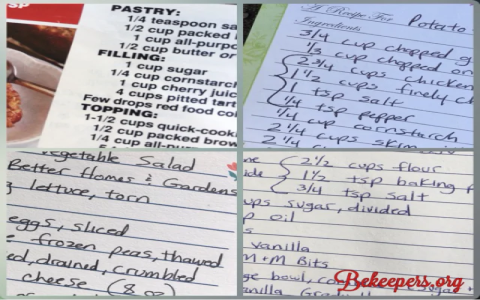 PASTRY:
1/4 teaspoon
1/2 cup packed
1 cup all-purpo
1/2 cup butter or
FILLING:
1 cup sugar
1/4 cup cornstarch
1 cup cherry juice
4 cups pitted tart
Few drops red food co
TOPPING:
1-1/2 cups quick-cook
1/2 cup packed brow
A Recipe For Potato
Ingredients
3/4 cup chopped
1/3 cup chopped
2 3/4 cups chicken
1 1/2 cups finely
1 tsp salt
1/4 tsp pepper
1/4 cup cornstarch
2 1/4 cups
Vegetable Salad
Better Homes & Gardens
lettuce, torn
eggs, sliced
frozen peas, thawed
drained, crumbled
cheese (8 oz)
2 1/2 cups flour
1 1/2 tsp baking
3/4 tsp salt
sugar, divided
oil
vanilla
M+M Bits
bowl,
Bekeepers.org